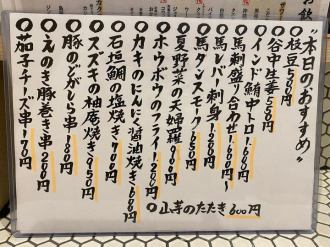 "本日のおすすめ"
○枝豆 550円
○谷中生姜 550円
○インド鮪中トロ 1.600円
○馬刺盛り合わせ 1.600円〜
○馬レバー刺身 1.200円
○馬タンスモーク 650円
○夏野菜の天婦羅 900円
○ホウボウのフライ 1200円
○カキのにんにく醤油焼き 680円
○石垣鯛の塩焼き 700円
○スズキの柚庵焼き 950円
○豚のどがしら串 180円
○えのき豚巻き串 200円
○茄子チーズ串 170円
○山芋のたたき 600円